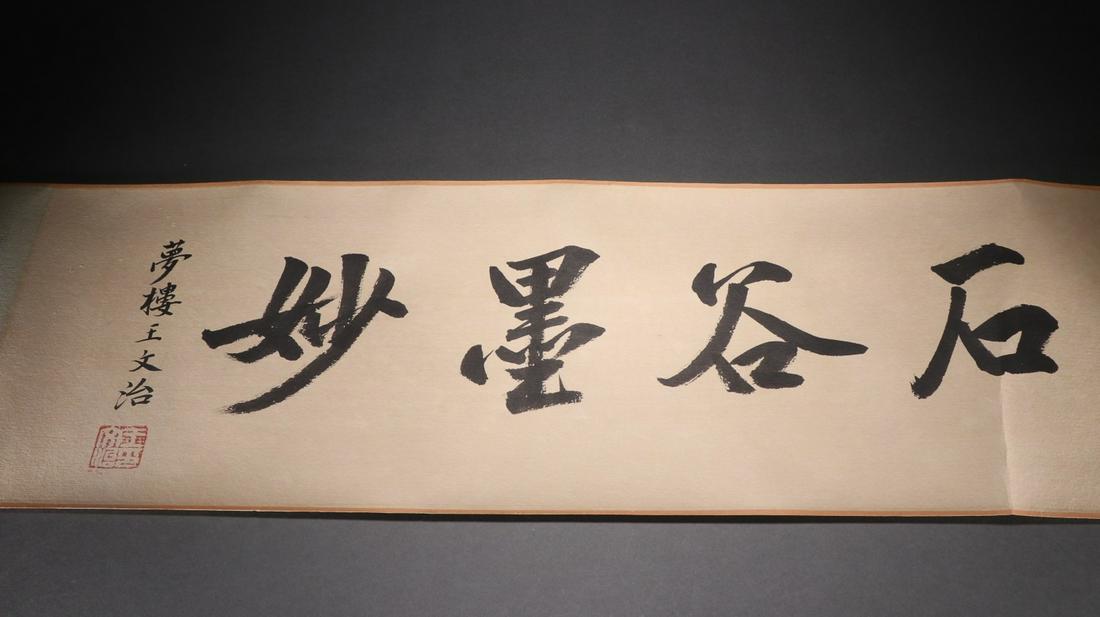 石谷墨妙
夢樓王文治